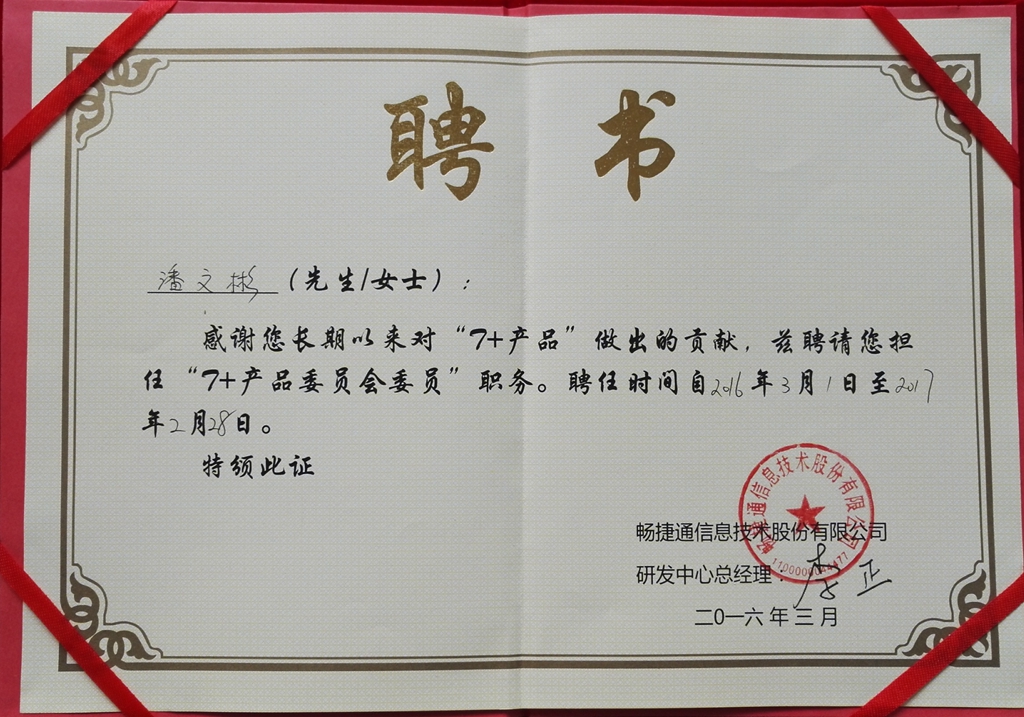 聘书
潘文彬（先生/女士）：
感谢您长期以来对“T+产品”做出的贡献，兹聘请您担
任“T+产品委员会委员”职务。聘任时间自2016年3月1日至2017
年2月28日。
特颁此证
畅捷通信息技术股份有限公司
畅捷通信息技术股份有限公司
研发中心总经理：李正
二0一六年三月